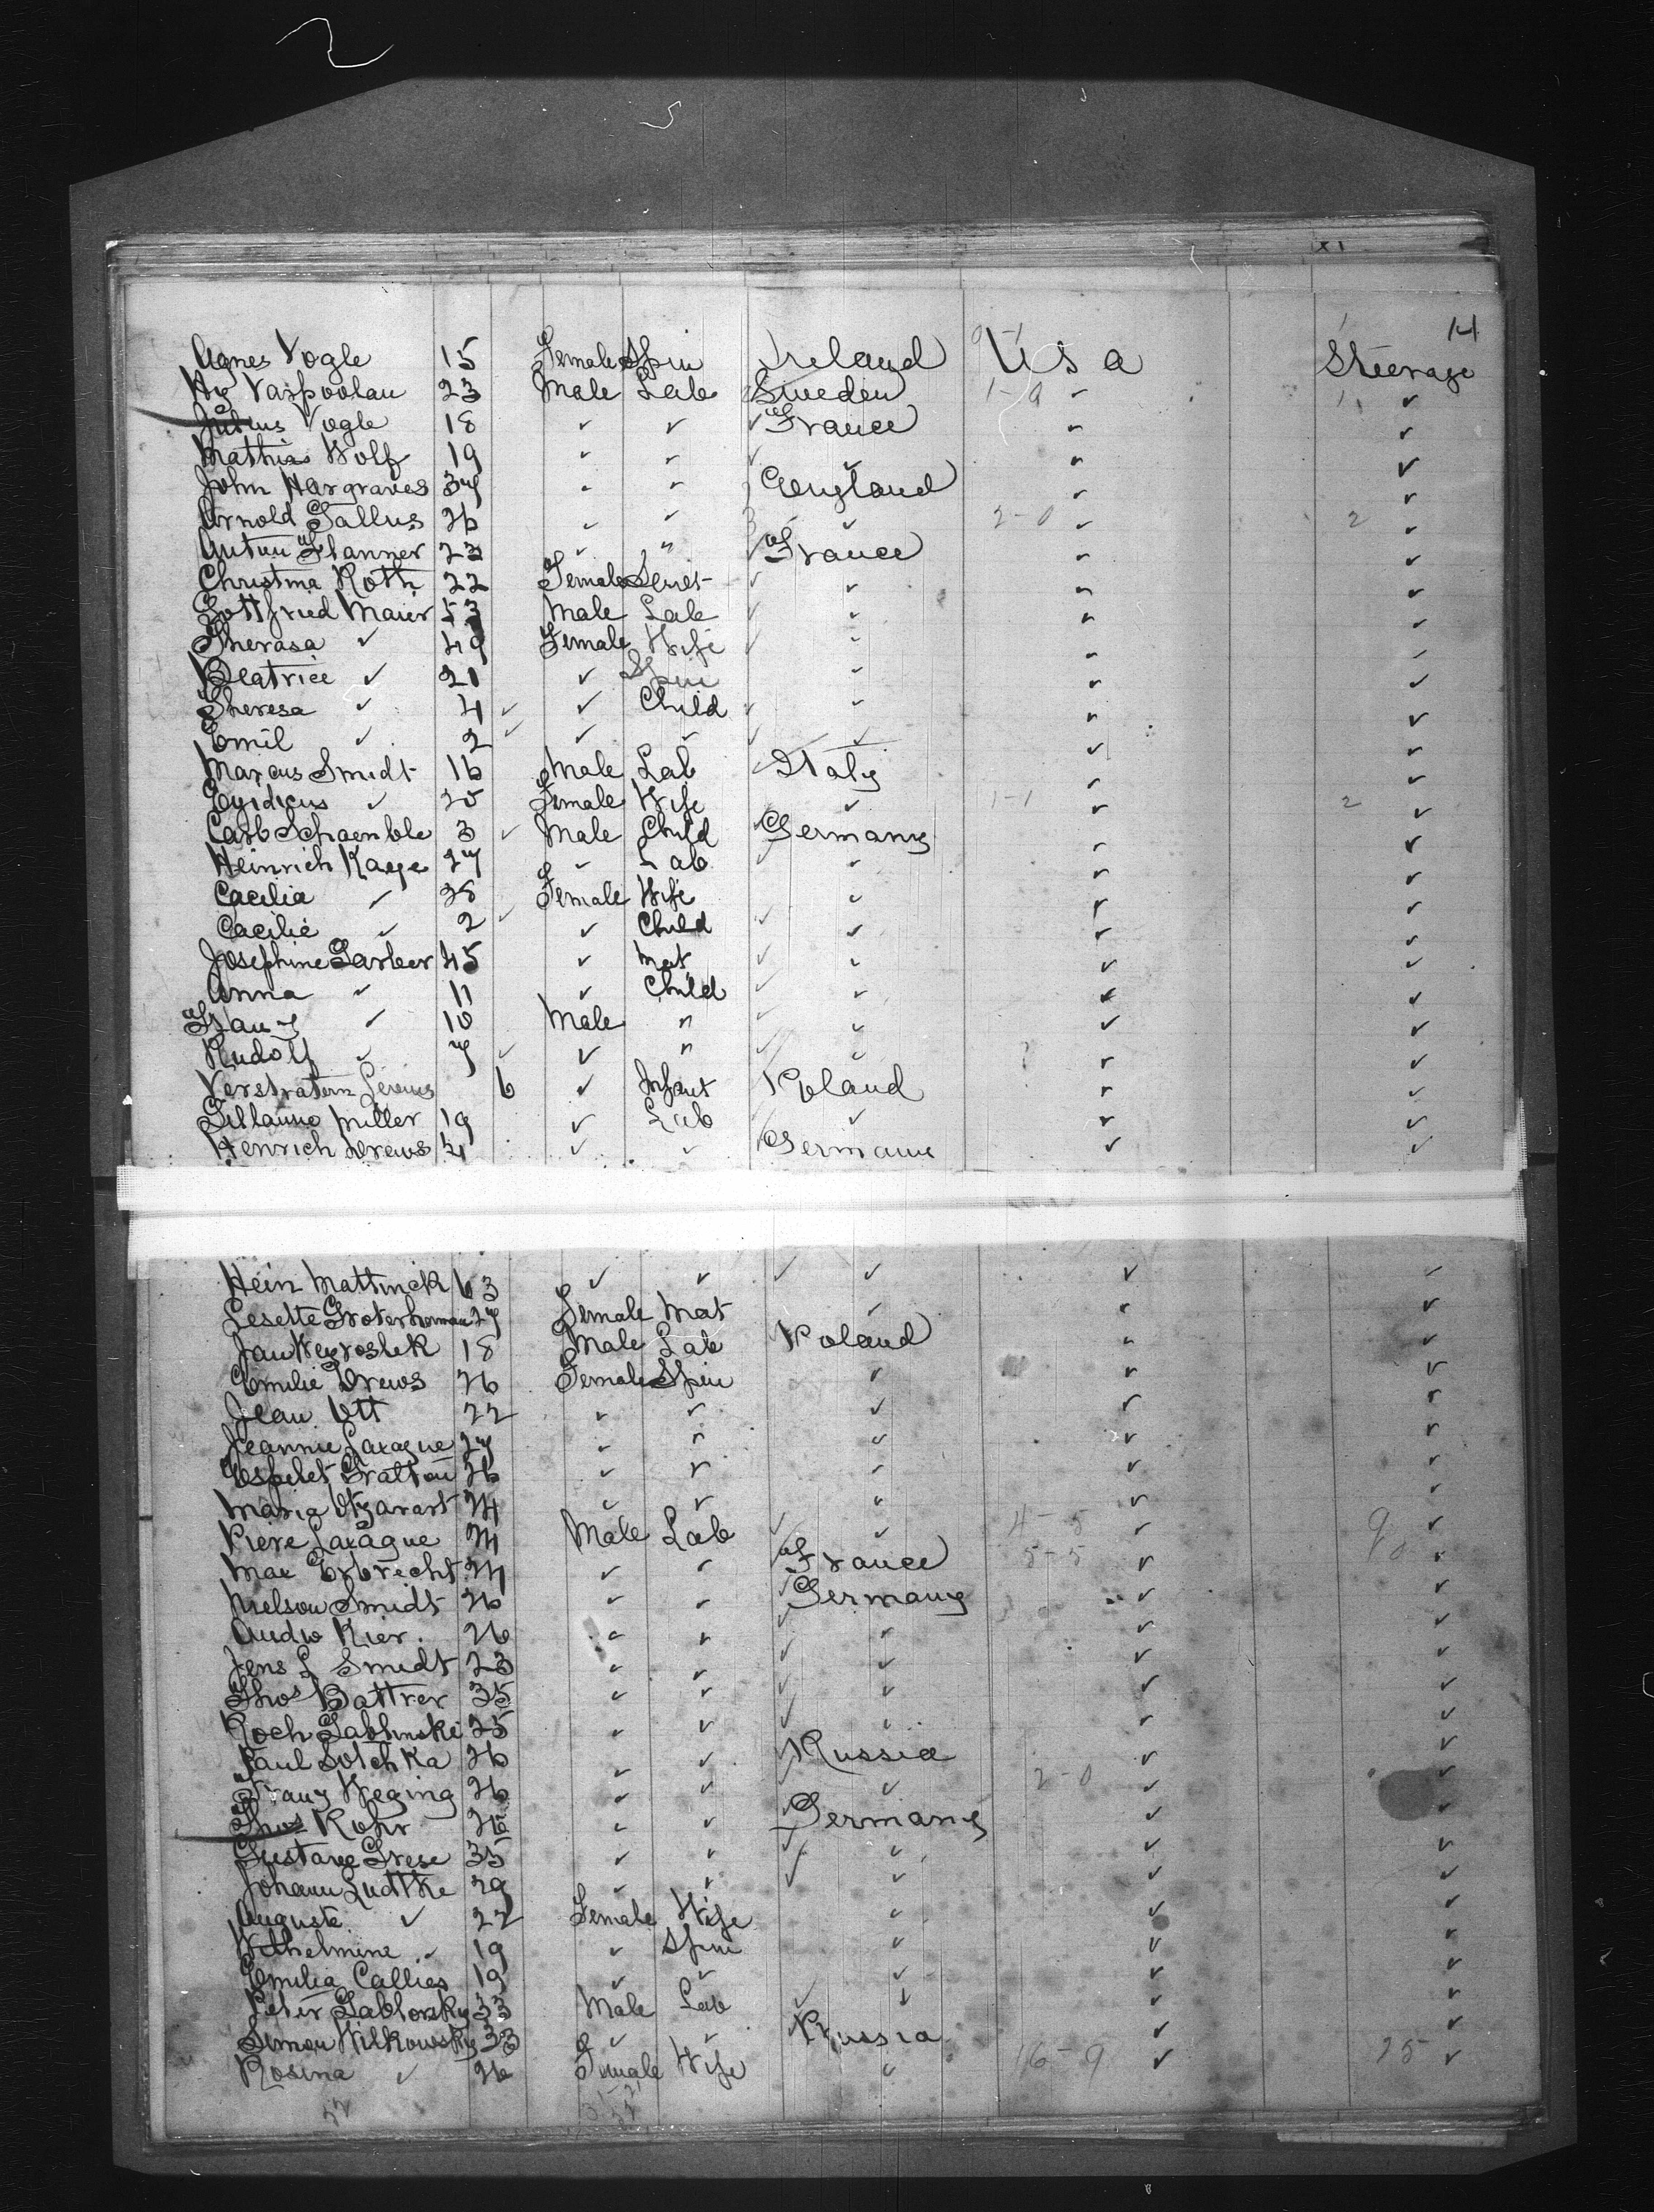 14
Agnes Vogle 15 Female Spin Ireland U S a Steerage
Hy Vaspoolan 23 Male Lab Sweden 1-9 ✓ 1 ✓
Julius Vogle 18 ✓ ✓ ✓ France ✓ ✓
Mathias Wolf 19 ✓ ✓ ✓ ✓ ✓ ✓
John Hargraves 37 ✓ ✓ England ✓ ✓
Arnold Gallus 26 ✓ ✓ ✓ 2-0 ✓ 2 ✓
Anton Flanner 23 ✓ " ✓ France ✓ ✓
Christina Roth 22 Female Servt ✓ ✓ ✓ ✓
Gottfried Maier 53 Male Lab ✓ ✓ ✓ ✓
Therasa ✓ 49 Female Wife ✓ ✓ ✓ ✓
Beatrice ✓ 21 ✓ Spin ✓ ✓ ✓
Theresa ✓ 4 ✓ ✓ Child ✓ ✓ ✓ ✓
Emil ✓ 2 ✓ ✓ ✓ ✓ ✓ ✓ ✓
Marcus Smidt 16 Male Lab ✓ Italy ✓ ✓
Egidius ✓ 20 Female Wife ✓ 1-1 ✓ 2 ✓
Carl Schaemble 3 ✓ Male Child ✓ Germany ✓ ✓
Heinrich Kaege 27 ✓ Lab ✓ ✓ ✓ ✓
Cacilia ✓ 28 Female Wife ✓ ✓ ✓
Cacilie ✓ 2 ✓ ✓ Child ✓ ✓ ✓ ✓
Josephine Garber 45 ✓ Mat ✓ ✓ ✓ ✓
Anna ✓ 11 ✓ Child ✓ ✓ ✓ ✓
Franz ✓ 10 Male " ✓ ✓ ✓ ✓
Rudolf ✓ 7 ✓ ✓ " ✓ ✓ ✓ ✓
Verstratern 6 ✓ Infant Poland ✓ ✓
Miller 19 ✓ Lab ✓ ✓ ✓
Henrich Drews 21 ✓ ✓ Germany ✓ ✓
Hein Mattinck 63 ✓ ✓ ✓ ✓ ✓ ✓
Lesette Groterhorman 27 Female Mat ✓ ✓ ✓
Jan Weyroslek 18 Male Lab Poland ✓ ✓
Emilie Drews 26 Female Spin ✓ ✓ ✓
Jean Ott 22 ✓ ✓ ✓ ✓ ✓
Jeannie Laxague 27 ✓ ✓ ✓ ✓ ✓
Espelet Grattou 26 ✓ ✓ ✓ ✓ ✓
Maria 24 ✓ ✓ ✓ ✓ ✓
Piere Laxague 24 Male Lab ✓ ✓ 4-5 ✓ 9 ✓
Max Erbrecht 24 ✓ ✓ France 5-5 ✓ ✓
Nielson Smidt 26 ✓ ✓ Germany ✓ ✓
Andw Kier 26 ✓ ✓ ✓ ✓ ✓ ✓
Jens L Smidt 23 ✓ ✓ ✓ ✓ ✓ ✓
Thos Battrer 35 ✓ ✓ ✓ ✓ ✓ ✓
Roch Gablinski 25 ✓ ✓ ✓ ✓ ✓ ✓
Paul Sotchka 26 ✓ ✓ Russia ✓ ✓
Franz Weging 26 ✓ ✓ ✓ ✓ 2-0 ✓ ✓
Thos Rohr 26 ✓ ✓ Germany ✓ ✓
Gustave Grese 35 ✓ ✓ ✓ ✓ ✓ ✓
Johann Ludtke 29 ✓ ✓ ✓ ✓ ✓ ✓
Auguste ✓ 22 Female Wife ✓ ✓ ✓
Wilhelmine ✓ 19 ✓ Spin ✓ ✓ ✓
Emilia Callies 19 ✓ ✓ ✓ ✓ ✓
Peter Gablowsky 33 Male Lab ✓ ✓ ✓ ✓
Simon Wilkowsky 33 ✓ ✓ Russia ✓ ✓
Rosina ✓ 26 Female Wife ✓ 16-9 ✓ 25 ✓